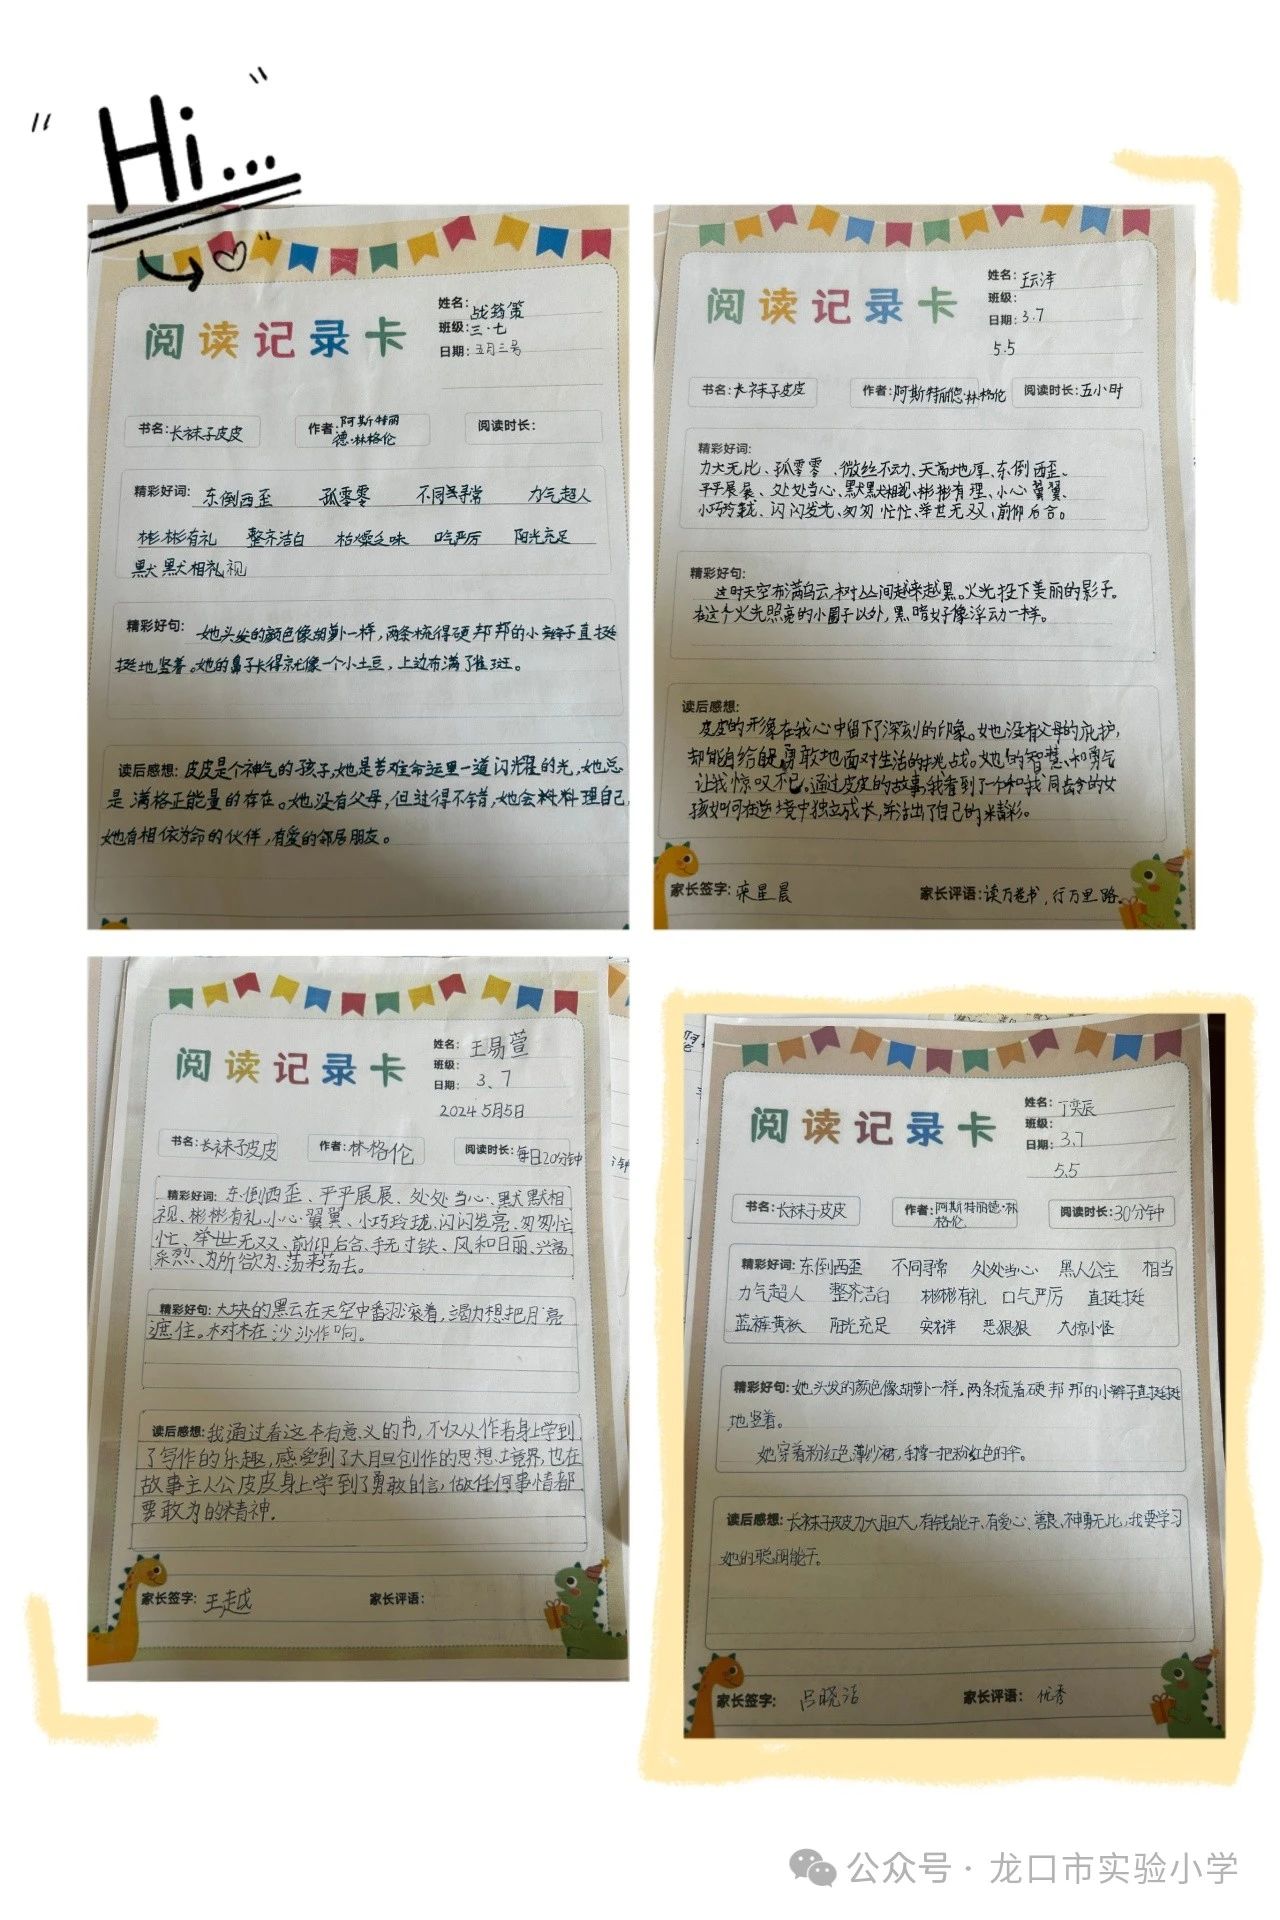 Hi...
阅读记录卡
姓名:战筠策
班级:三·七
日期:五月三号
书名:长袜子皮皮
作者:阿斯特丽
德·林格伦
阅读时长:
精彩好词:东倒西歪 孤零零 不同寻常 力气超人
彬彬有礼 整齐洁白 枯燥乏味 口气严厉 阳光充足
默默相视
精彩好句:她头发的颜色像胡萝卜一样,两条梳得硬邦邦的小辫子直挺
挺地竖着。她的鼻子长得就像一个小土豆,上边布满了雀斑。
读后感想:皮皮是个神气的孩子,她是苦难命运里一道闪耀的光,她总
是满格正能量的存在。她没有父母,但过得不错,她会料料理自己,
她有相依为命的伙伴,有爱的邻居朋友。
阅读记录卡
姓名:王云泽
班级:
日期:3.7
5.5
书名:长袜子皮皮
作者:阿斯特丽德·林格伦
阅读时长:五小时
精彩好词:
力大无比、孤零零、微丝不动、天高地厚、东倒西歪、
平平展展、处处当心、默默相视、彬彬有理、小心翼翼、
小巧玲珑、闪闪发光、匆匆忙忙、举世无双、前仰后合。
精彩好句:
这时天空布满乌云,树丛间越来越黑。火光投下美丽的影子。
在这个火光照亮的小圈子以外,黑暗好像浮动一样。
读后感想:
皮皮的形象在我心中留下了深刻的印象。她没有父母的庇护,
却能自给自足,勇敢地面对生活的挑战。她的智慧和勇气
让我惊叹不已。通过皮皮的故事,我看到了一个和我同龄的女
孩如何在逆境中独立成长,并活出了自己的精彩。
家长签字:栾星晨
家长评语:读万卷书,行万里路。
阅读记录卡
姓名:王易萱
班级:
日期:3、7
2024.5月5日
书名:长袜子皮皮
作者:林格伦
阅读时长:每日20分钟
精彩好词:东倒西歪、平平展展、处处当心、默默相
视、彬彬有礼、小心翼翼、小巧玲珑、闪闪发亮、匆匆忙
忙、举世无双、前仰后合、手无寸铁、风和日丽、兴高
采烈、为所欲为、荡来荡去。
精彩好句:大块的黑云在天空中翻滚着,竭力想把月亮
遮住。树木在沙沙作响。
读后感想:我通过看这本有意义的书,不仅从作者身上学到
了写作的乐趣,感受到了大胆创作的思想境界,也在
故事主人公皮皮身上学到了勇敢自信,做任何事情都
要敢为的精神.
家长签字:王越
家长评语:
阅读记录卡
姓名:丁奕辰
班级:
日期:3.7
5.5
书名:长袜子皮皮
作者:阿斯特丽德·林
格伦
阅读时长:30分钟
精彩好词:东倒西歪 不同寻常 处处当心 黑人公主 相当
力气超人 整齐洁白 彬彬有礼 口气严厉 直挺挺
蓝裤黄袄 阳光充足 安详 恶狠狠 大惊小怪
精彩好句:她头发的颜色像胡萝卜一样,两条梳着硬邦邦的小辫子直挺挺
地竖着。
她穿着粉红色薄纱裙,手撑一把粉红色的伞。
读后感想:长袜子皮皮力大胆大,有钱能干、有爱心、善良、神勇无比,我要学习
她的聪明能干。
家长签字:吕晓洁
家长评语:优秀
公众号·龙口市实验小学